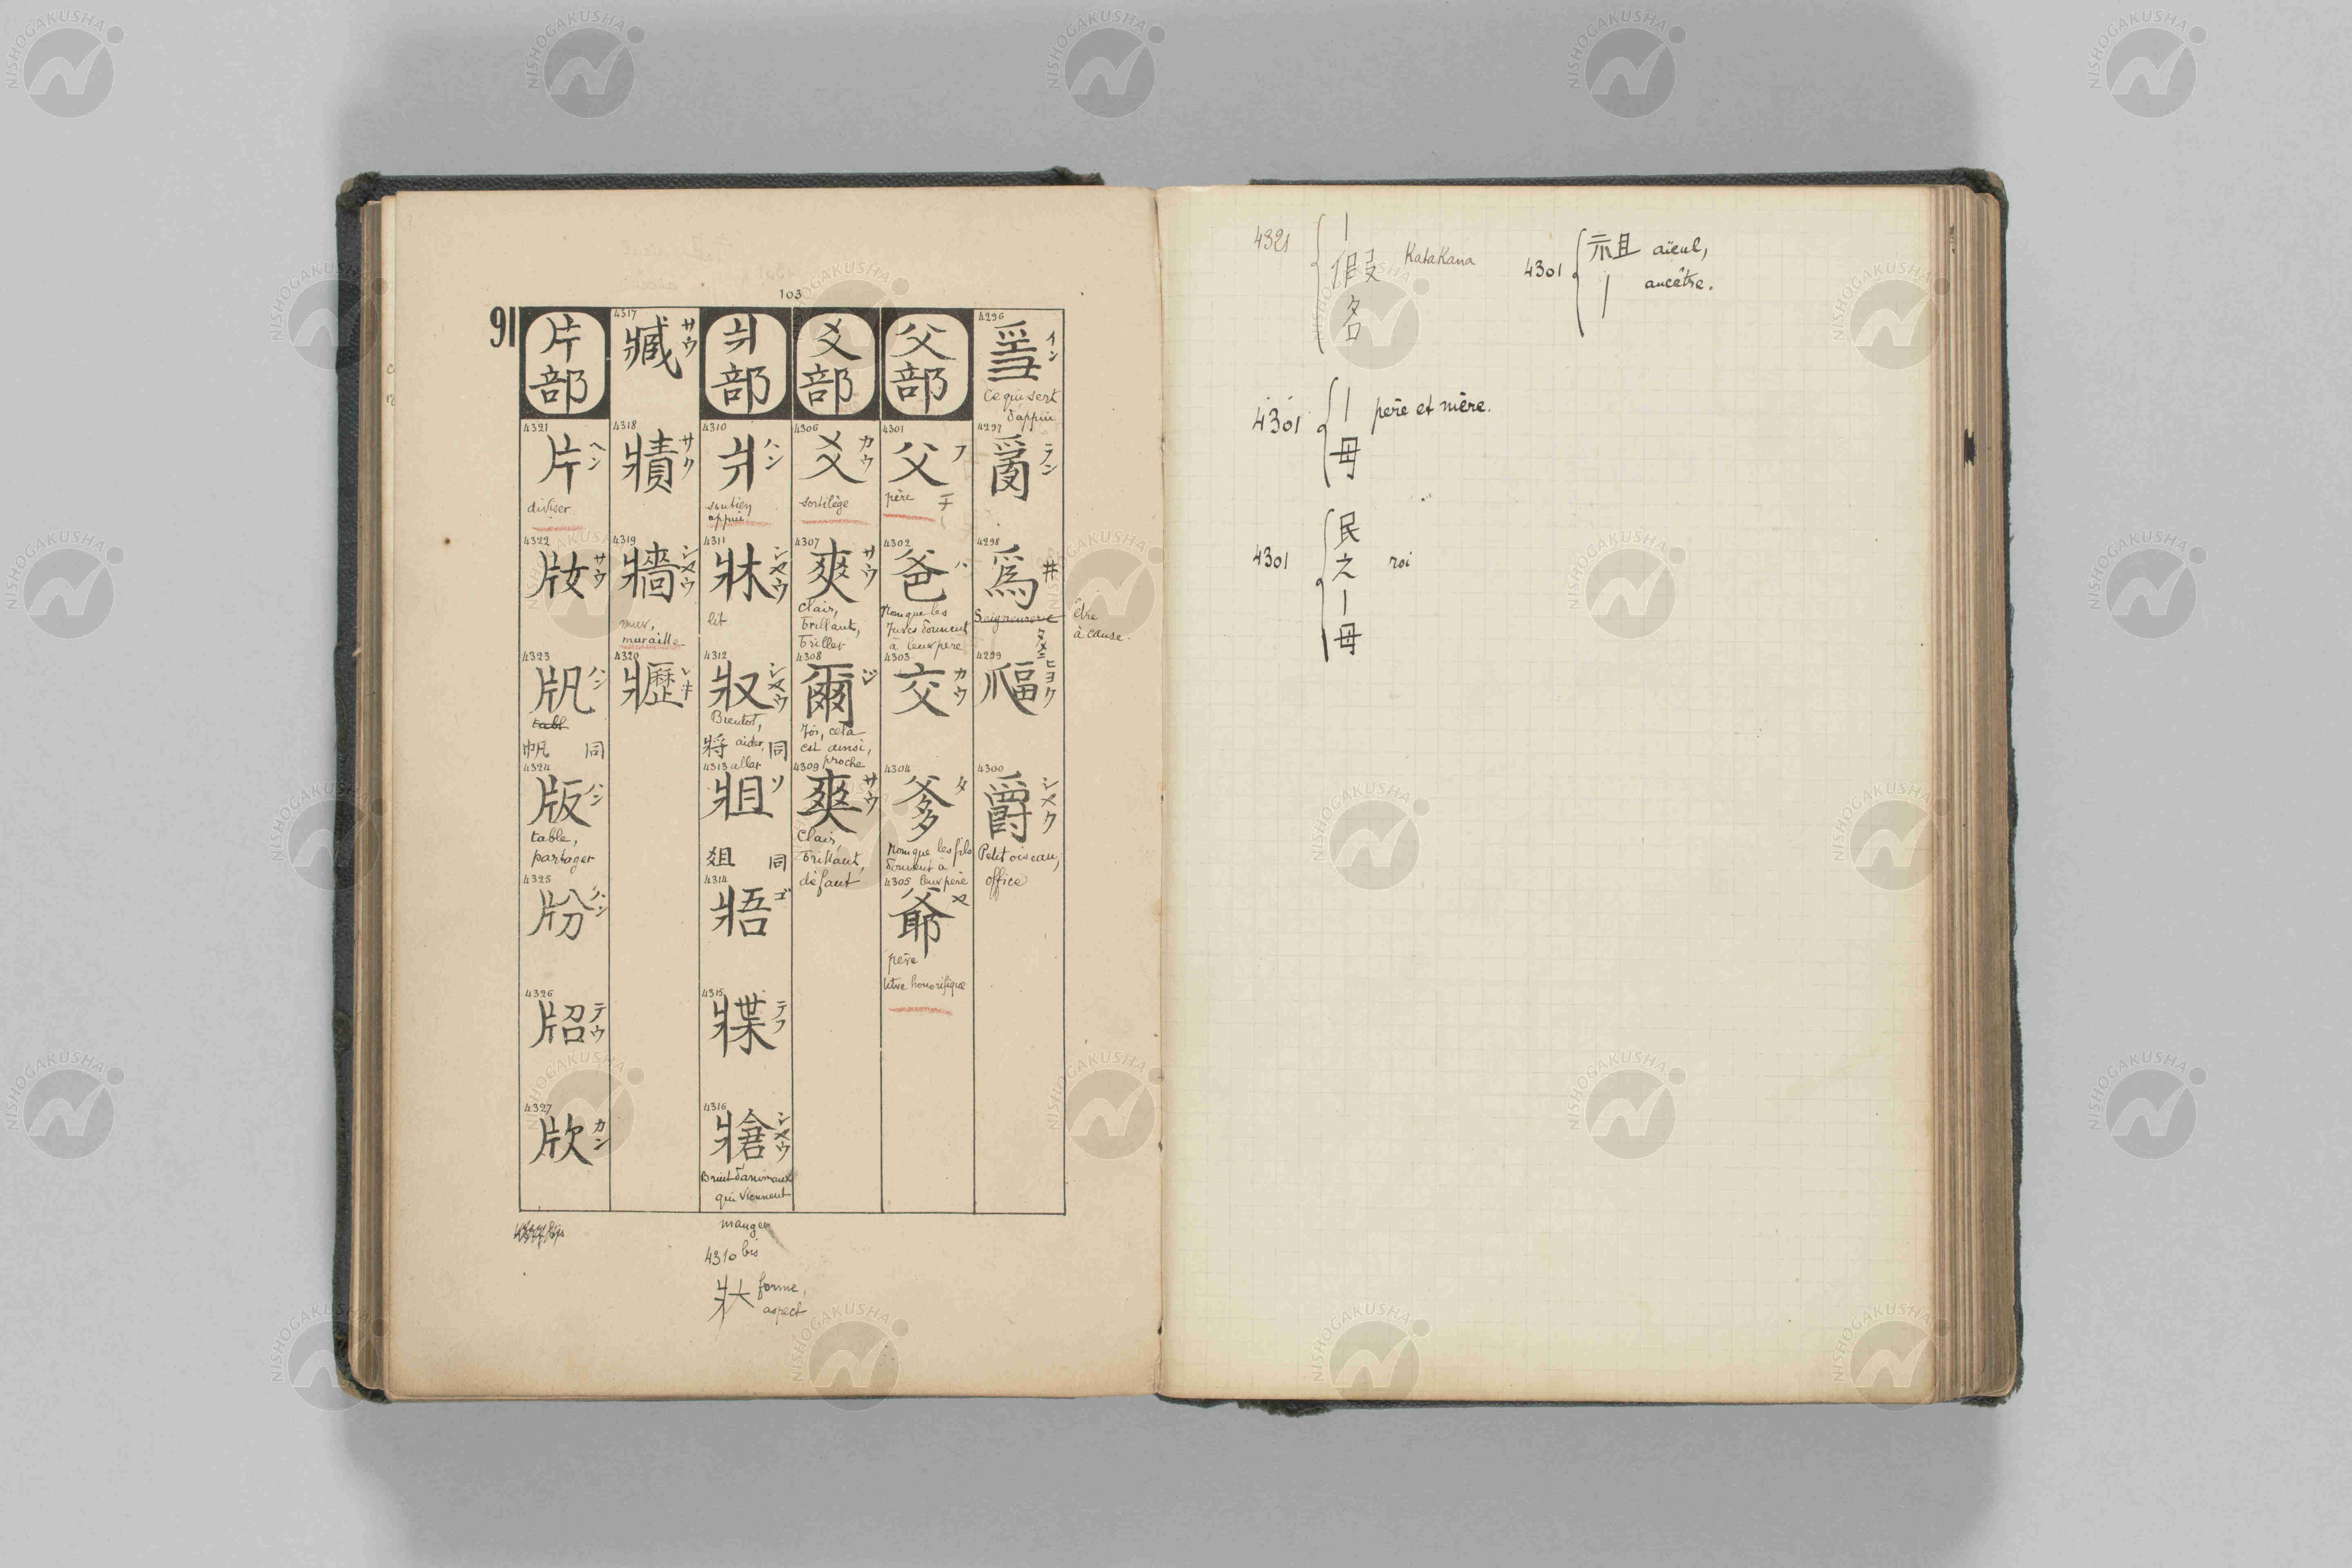 103
91
4296
イン
Ce qui sert
d'appui
4297
ラン
4298
爲
井
Seigneurerie
être
à cause.
タメニ
4299
ヒヨク
4300
爵
シヤク
Petit oiseau,
office
父部
4301
父
フ
père
チヽ
4302
爸
ハ
Nom que les
à leur père
4303
交
カウ
4304
爹
タ
Nom que les fils
donnent à
leur père
4305
爺
ヤ
père
titre honorifique
爻部
4306
爻
カウ
sortilège
4307
爽
サウ
Clair,
brillant,
briller
4308
爾
ジ
Toi, cela
est ainsi,
proche
4309
サウ
Clair,
brillant,
défaut
爿部
4310
爿
ハン
soutien
appui
4311
牀
シヤウ
lit
4312
シヤウ
Bientôt,
將 aider, 同
aller
4313
ソ
俎 同
4314
牾
ゴ
4315
牒
テフ
4316
牄
シヤウ
Bruit d'animaux
qui viennent
manger
4310 bis
狀 forme,
aspect
4317
臧
サウ
4318
サク
4319
牆
シヤウ
mur,
muraille
4320
レキ
片部
4321
片
ヘン
diviser
4322
サウ
4323
ハン
tabl
帆 同
4324
版
ハン
table,
partager
4325
ハン
4326
テウ
4327
カン
4321
｜
假
名
Katakana
4301
祖 aïeul,
｜ ancêtre.
4301
｜
母
père et mère.
4301
民
之
｜
母
roi